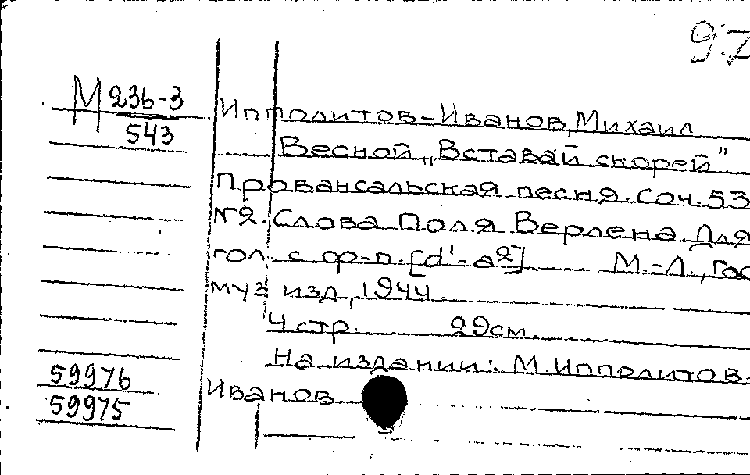 97
М 236-3
543
Ипполитов-Иванов, Михаил
Весной „Вставай скорей"
Провансальская песня. Соч. 53
№2. Слова Поля Верлена. Для
гол. с ф-п. [d'-a²] М.-Л., Гос
муз изд, 1944
4 стр. 29см.
На издании: М. Ипполитов-
Иванов
59976
59975